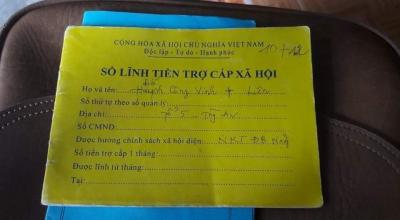 CỘNG HÒA XÃ HỘI CHỦ NGHĨA VIỆT NAM
Độc lập - Tự do - Hạnh phúc
SỔ LĨNH TIỀN TRỢ CẤP XÃ HỘI
Họ và tên: Huỳnh Công Vinh + Liên
Số thứ tự theo sổ quản lý:
Địa chỉ: Tổ 5 - Tây An
Số CMND:
Được hưởng chính sách xã hội diện: NKT ĐB Nặng
Số tiền trợ cấp 1 tháng:
Được lĩnh từ tháng:
Tại: